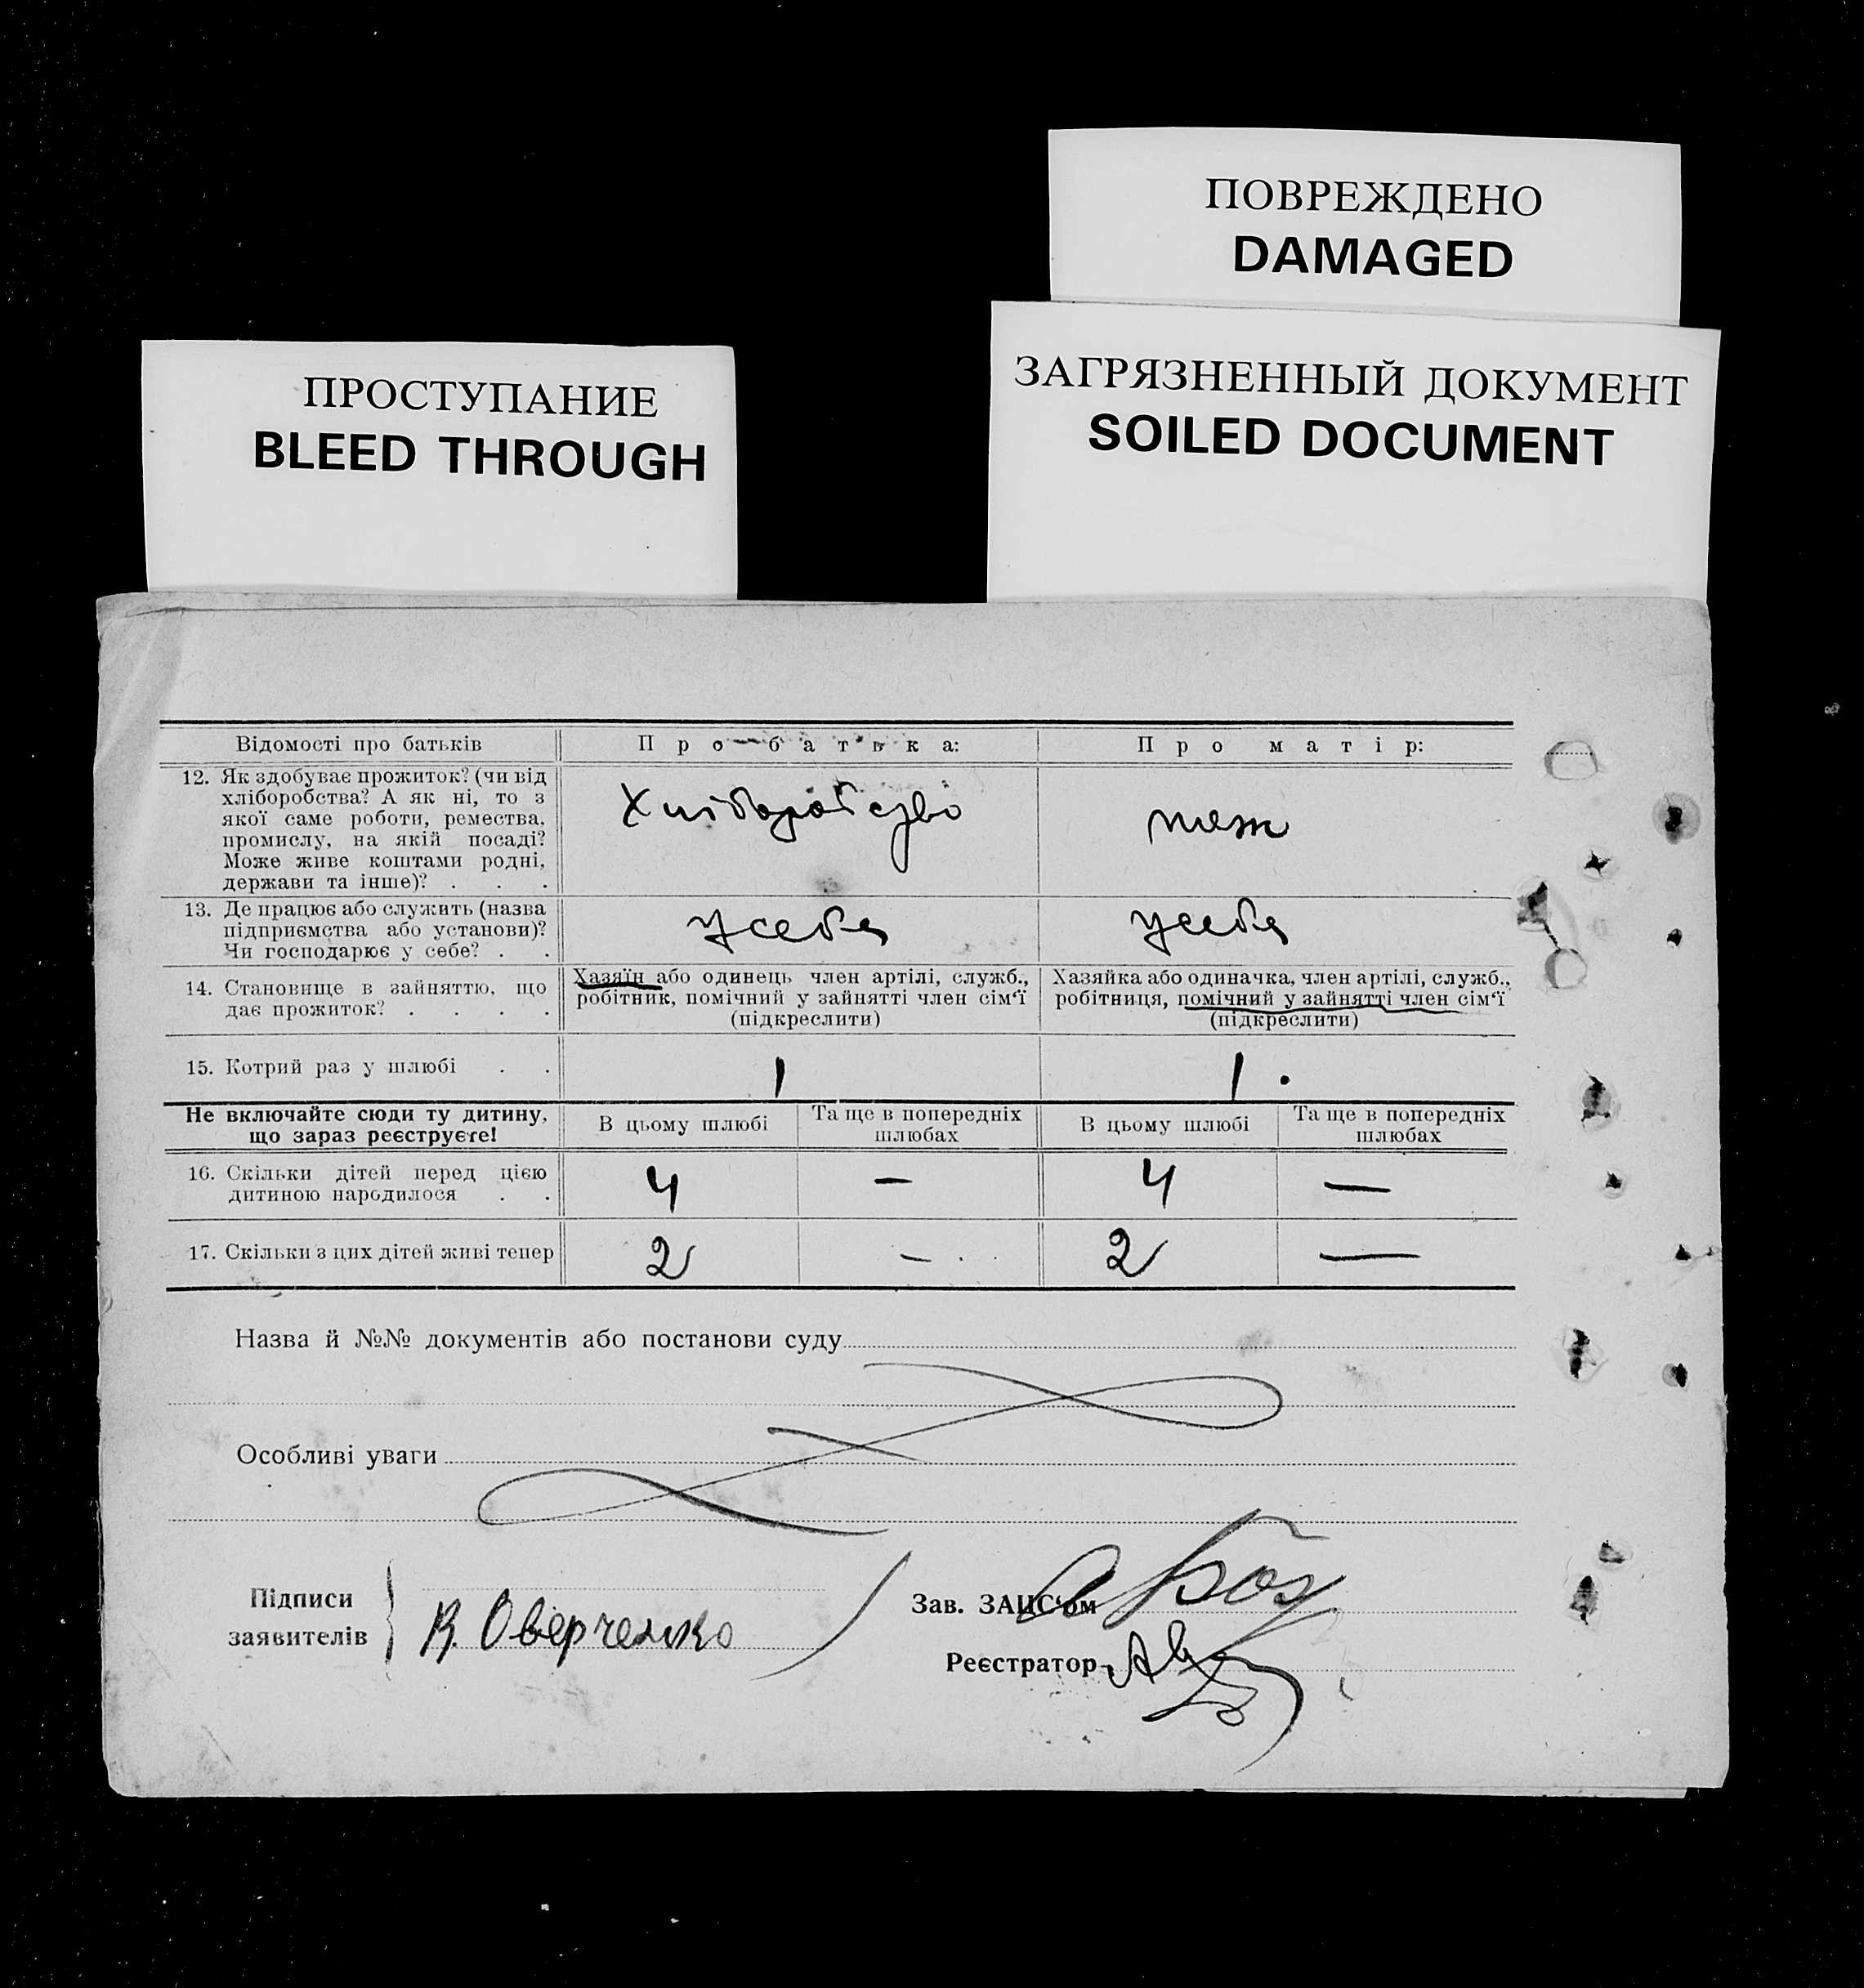 ПОВРЕЖДЕНО
DAMAGED
ПРОСТУПАНИЕ
BLEED THROUGH
ЗАГРЯЗНЕННЫЙ ДОКУМЕНТ
SOILED DOCUMENT
Відомості про батьків
Про батька:
Про матір:
12. Як здобуває прожиток? (чи від
хліборобства? А як ні, то з
якої саме роботи, ремества,
промислу, на якій посаді?
Може живе коштами родні,
держави та інше)? . . .
Хліборобство
теж
13. Де працює або служить (назва
підприємства або установи)?
Чи господарює у себе? . .
У себе
у себе
14. Становище в зайняттю, що
дає прожиток? . . . .
Хазяїн або одинець член артілі, служб.,
робітник, помічний у зайнятті член сім'ї
(підкреслити)
Хазяйка або одиначка, член артілі, служб.,
робітниця, помічний у зайнятті член сім'ї
(підкреслити)
15. Котрий раз у шлюбі . .
1
1.
Не включайте сюди ту дитину,
що зараз реєструєте!
В цьому шлюбі
Та ще в попередніх
шлюбах
В цьому шлюбі
Та ще в попередніх
шлюбах
16. Скільки дітей перед цією
дитиною народилося . .
4
—
4
—
17. Скільки з цих дітей живі тепер
2
—
2
—
Назва й №№ документів або постанови суду
Особливі уваги
Підписи
заявителів
В. Оверченко
Зав. ЗАЦС'ом
Реєстратор